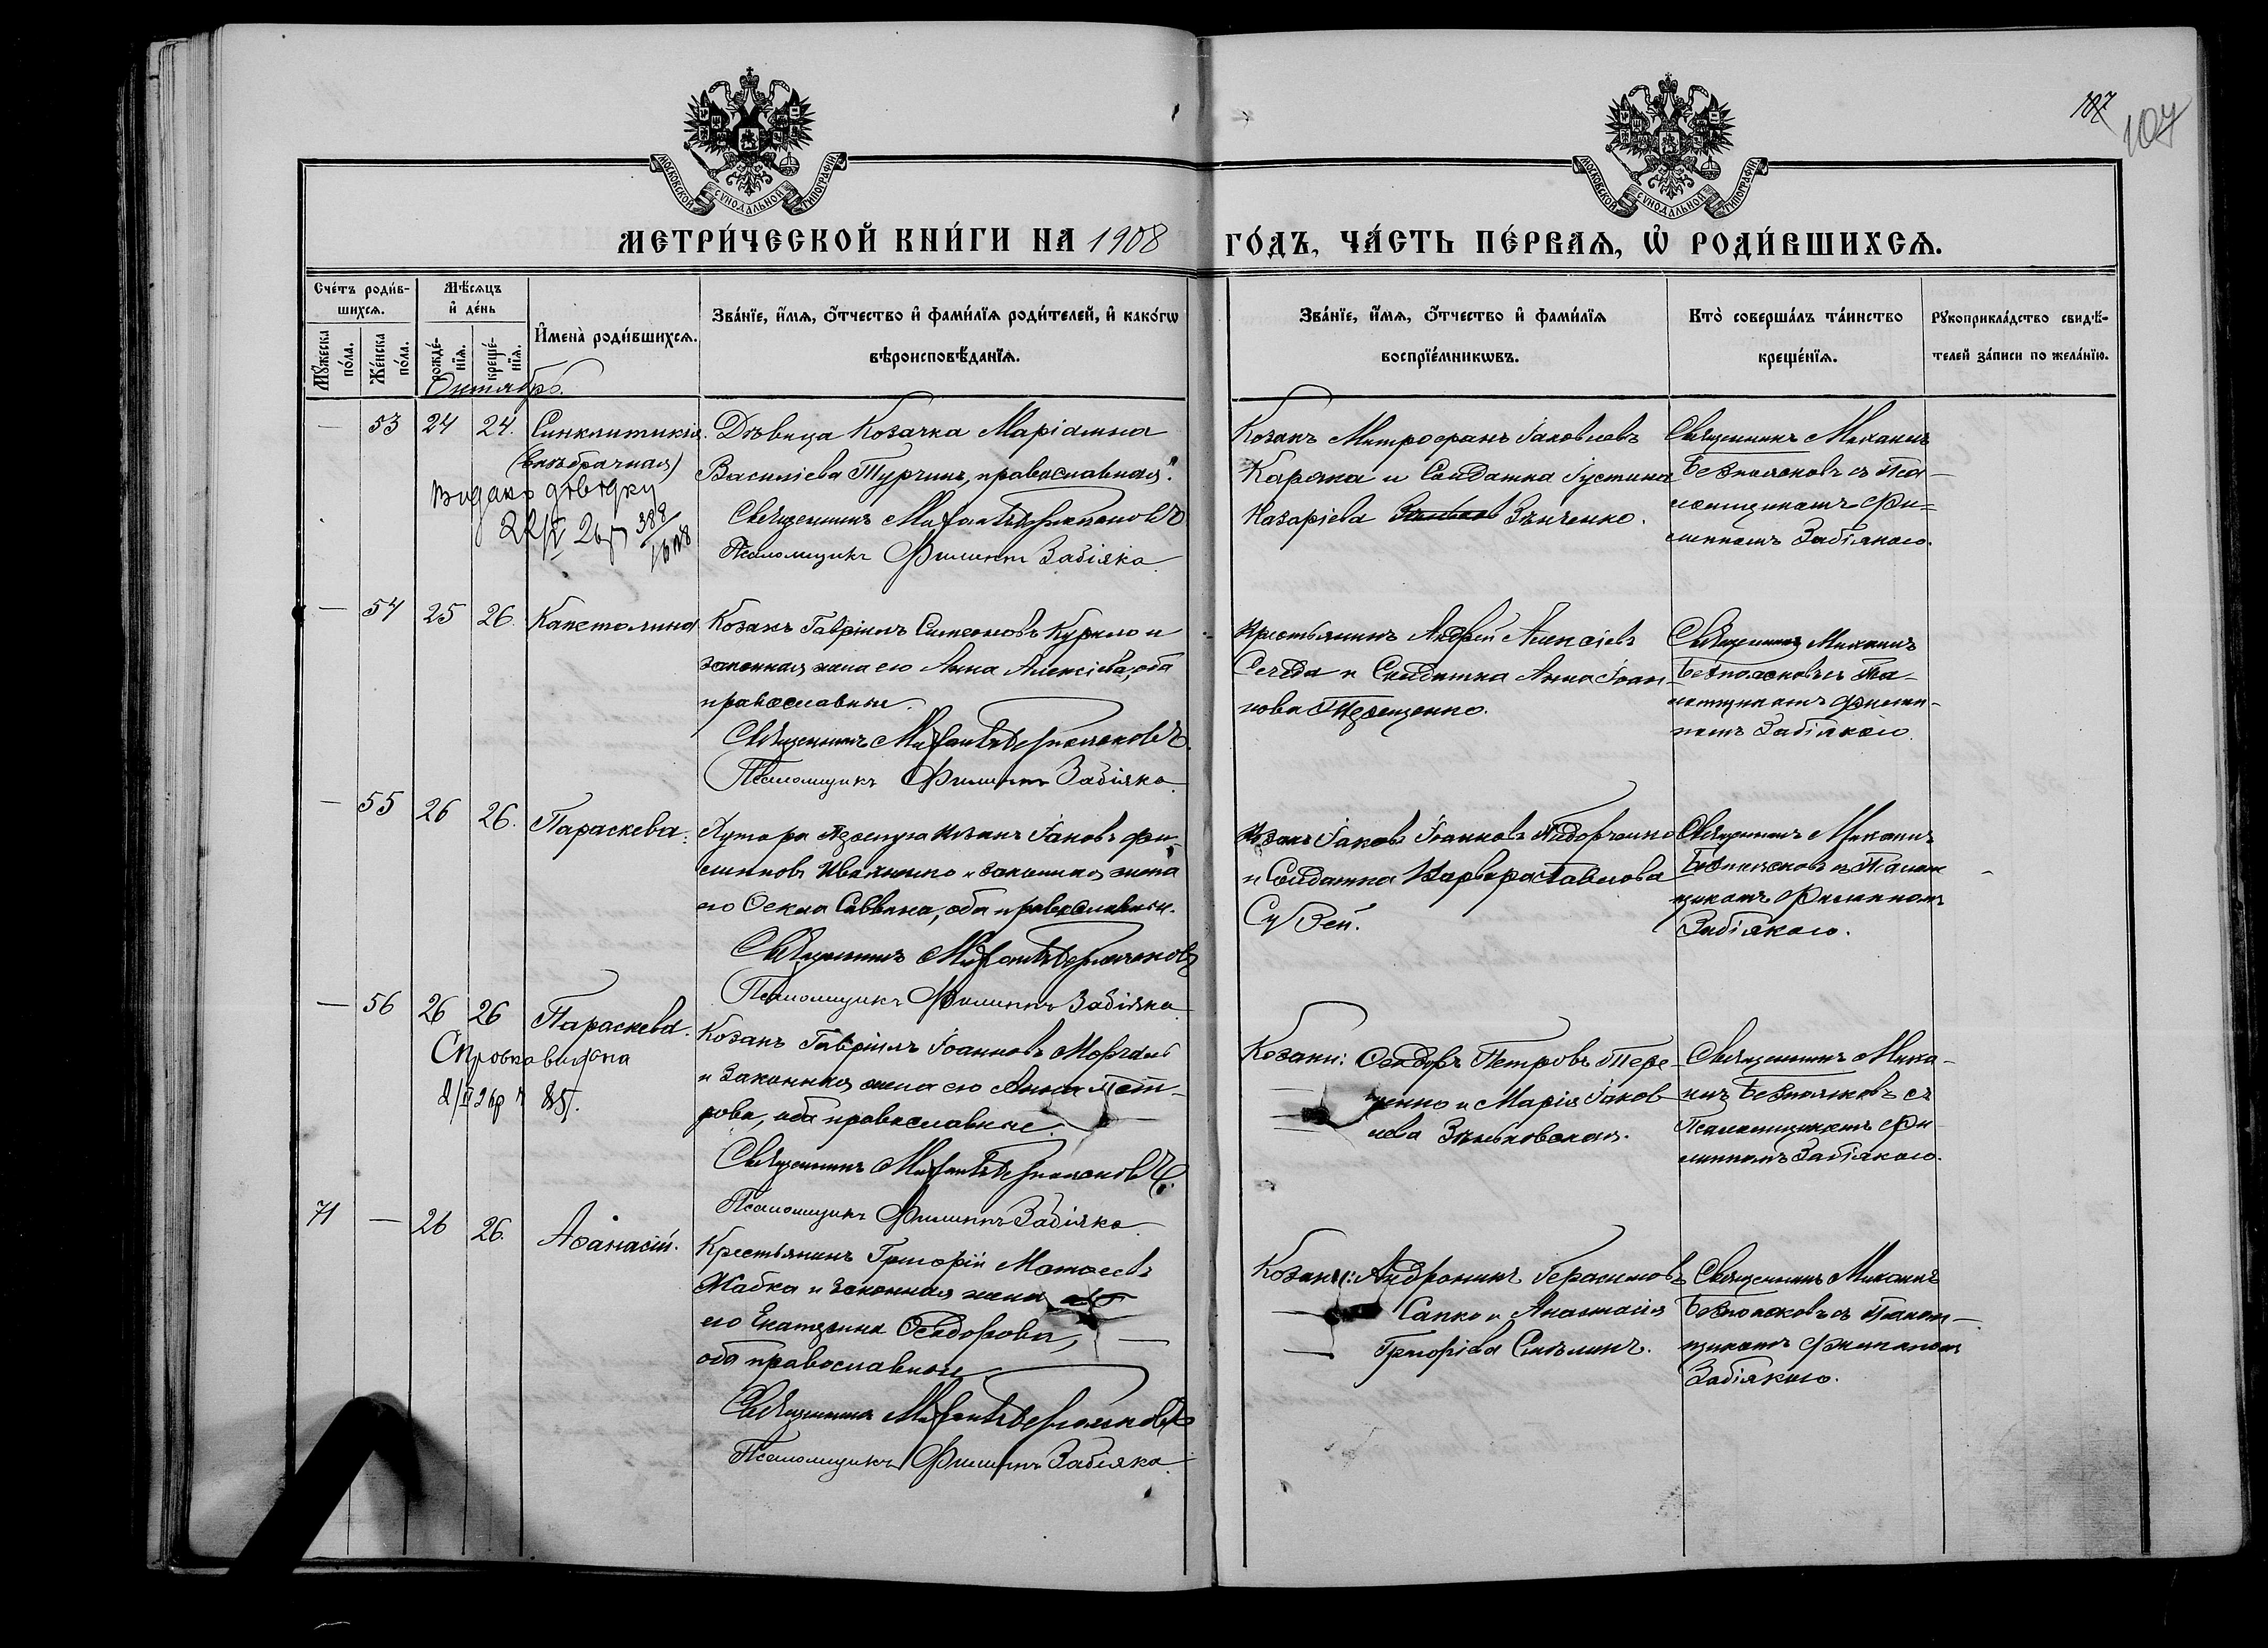 187
107
МОСКОВСКОЙ СѴНОДАЛЬНОЙ ТИПОГРАФІИ
МОСКОВСКОЙ СѴНОДАЛЬНОЙ ТИПОГРАФІИ
МЕТРИ́ЧЕСКОЙ КНИ́ГИ НА 1908
ГО́ДЪ, ЧА́СТЬ ПЕ́РВАѦ, Ѡ҆ РОДИ́ВШИХСѦ.
Сче́тъ роди́в-
шихсѧ.
Мꙋ́жеска по́ла.
Же́нска по́ла.
Мѣ́сѧцъ
и҆ де́нь
рожде́-нїѧ.
креще́-нїѧ.
И҆мена̀ роди́вшихсѧ.
Зва́нїе, и҆́мѧ, ѻ҆́тчество и҆ фами́лїѧ роди́телей, и҆ како́гѡ
вѣроисповѣ́данїѧ.
Зва́нїе, и҆́мѧ, ѻ҆́тчество и҆ фами́лїѧ
воспрїе́мникѡвъ.
Кто̀ соверша́лъ та́инство
креще́нїѧ.
Рꙋкоприкла́дство свидѣ́-
телей за́писи по жела́нїю.
Октябрь.
— 53 24 24. Синклитикія.
(внѣбрачная)
видано довідку
Дѣвица Козачка Маріамна
Василіева Турчинъ, православная.
Священникъ Михаилъ Безпояsковъ
Псаломщикъ Филиппъ Забіяка.
Козакъ Митрофанъ Іаковлевъ
Каряка и Солдатка Іустина
Назаріева Зѣнченко.
Священникъ Михаилъ
Безпоясковъ съ Пса-
ломщикомъ Фи-
липпомъ Забіякою.
— 54 25 26. Капетолина
Козакъ Гавріилъ Симеоновъ Курило и
законная жена его Анна Алексіева, оба
православные.
Священникъ Михаилъ Безпоясковъ
Псаломщикъ Филиппъ Забіяка.
Крестьянинъ Андрей Алексіевъ
Середа и Солдатка Анна Іоан-
нова Терещенко.
Священникъ Михаилъ
Филип-
помъ Забіякою.
— 55 26 26. Параскева.
Хутора козакъ Іаковъ Фи-
липповъ Ивахненко и законная жена
его Оекла Саввина, оба православные.
Священникъ Михаилъ Безпоясковъ
Псаломщикъ Филиппъ Забіяка.
Козакъ Іаковъ Іоанновъ Ѳидорченко
и Солдатка Варвара Павлова
Священникъ Михаилъ
Филиппомъ
Забіякою.
— 56 26 26 Параскева.
Справка видана
Козакъ Гавріилъ Іоанновъ Моргаль
и законная жена его Анна Пет-
рова, оба православные.
Священникъ Михаилъ Безпоясковъ
Псаломщикъ Филиппъ Забіяка.
Козаки: Ѳеодоръ Петровъ Тере-
щенко и Марія Іаков-
лева Зѣньковская.
Священникъ Миха-
илъ Безпоясковъ съ
Псаломщикомъ Фи-
липпомъ Забіякою.
71 — 26 26. Аѳанасій.
Крестьянинъ Григорій Матѳеевъ
Жабка и законная жена
его Екатерина Ѳеодорова,
оба православные
Священникъ Михаилъ Безпоясковъ
Псаломщикъ Филиппъ Забіяка.
Козаки: Андроникъ Герасимовъ
Сапко и Анастасія
Григоріева
Священникъ Михаилъ
Безпоясковъ съ Псалом-
щикомъ Филиппомъ
Забіякою.